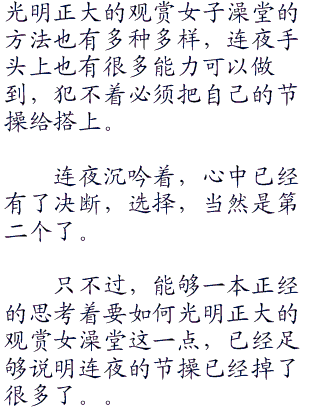 光明正大的观赏女子澡堂的
方法也有多种多样，连夜手
头上也有很多能力可以做
到，犯不着必须把自己的节
操给搭上。
连夜沉吟着，心中已经
有了决断，选择，当然是第
二个了。
只不过，能够一本正经
的思考着要如何光明正大的
观赏女澡堂这一点，已经足
够说明连夜的节操已经掉了
很多了。。